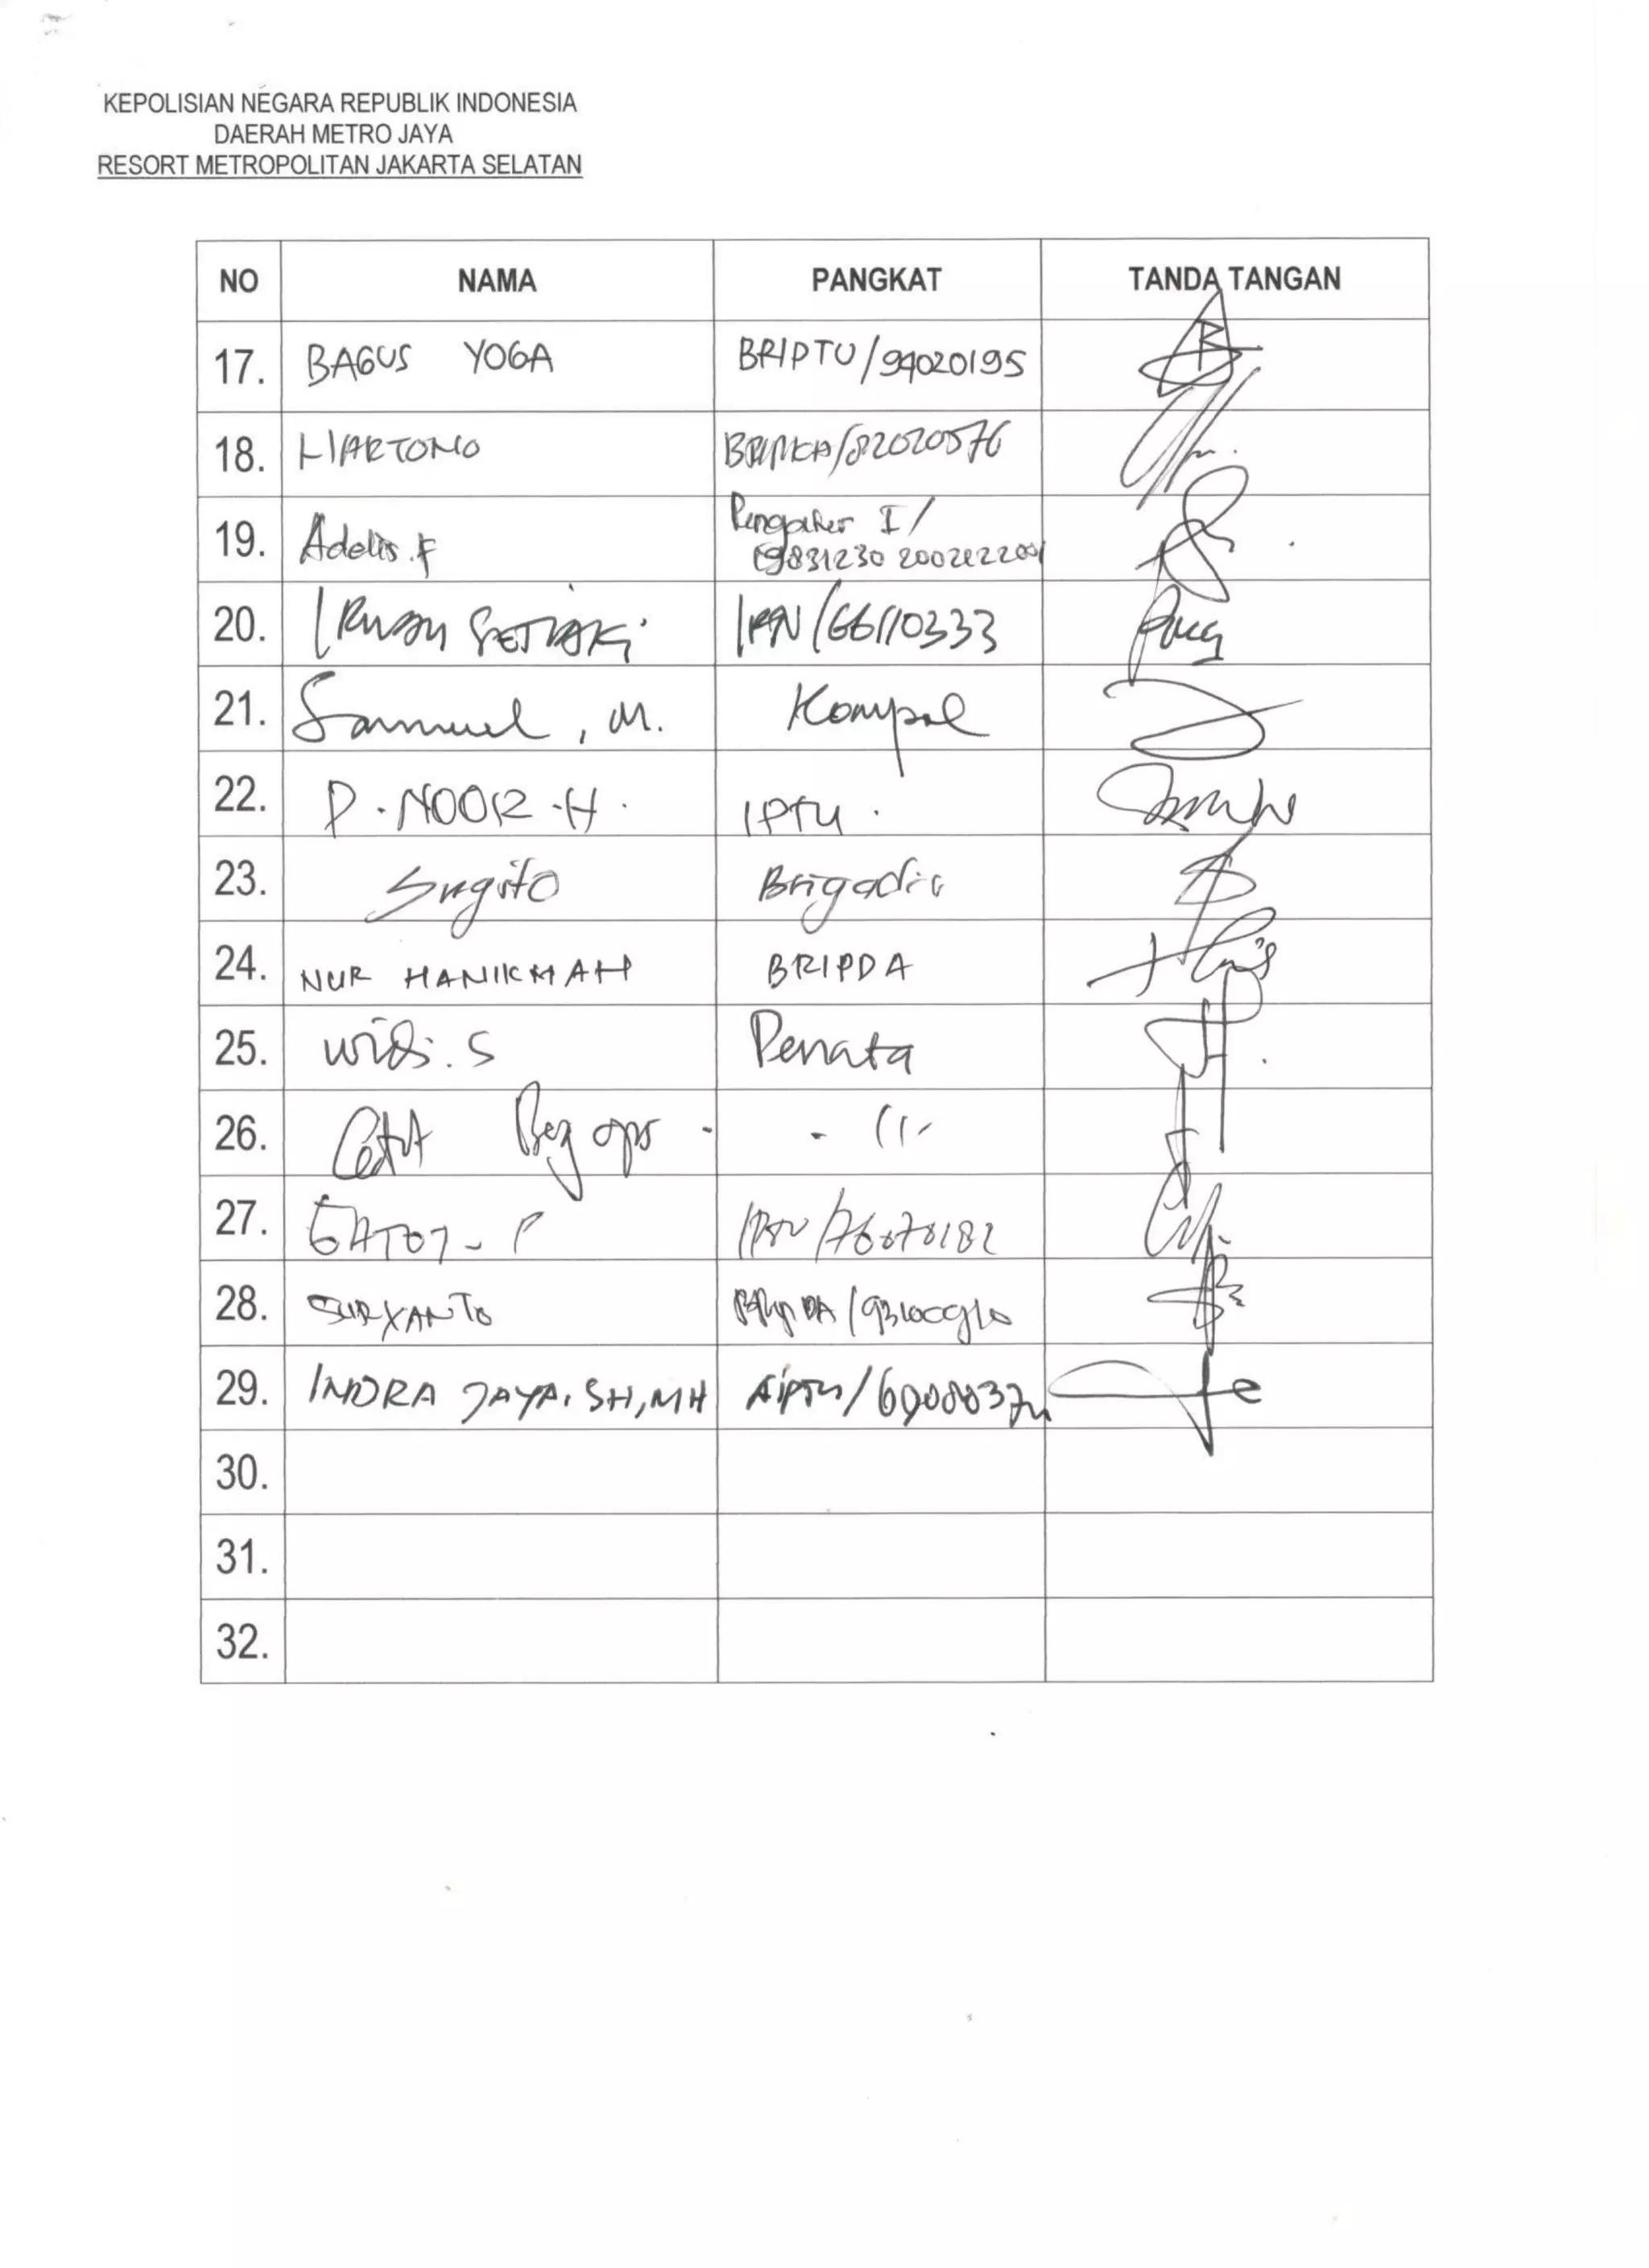 KEPOLISIAN NEGARA REPUBLIK INDONESIA
DAERAH METRO JAYA
RESORT METROPOLITAN JAKARTA SELATAN
NO NAMA PANGKAT TANDA TANGAN
17. BAGUS YOGA BRIPTU/94020195
18. HARTONO BRIPKA/82020576
19. Adelis.F Pengatur I/
20. SETIAKI 66110333
21. Samuel, M. Kompol
22. P. NOOR.H. IPTU.
23. Sugito Brigadir
24. NUR HANIKMAH BRIPDA
25. Widi.S Penata
26.
27. GATOT-P
28. SURYANTO
29. INDRA JAYA, SH, MH AIPTU/
30.
31.
32.